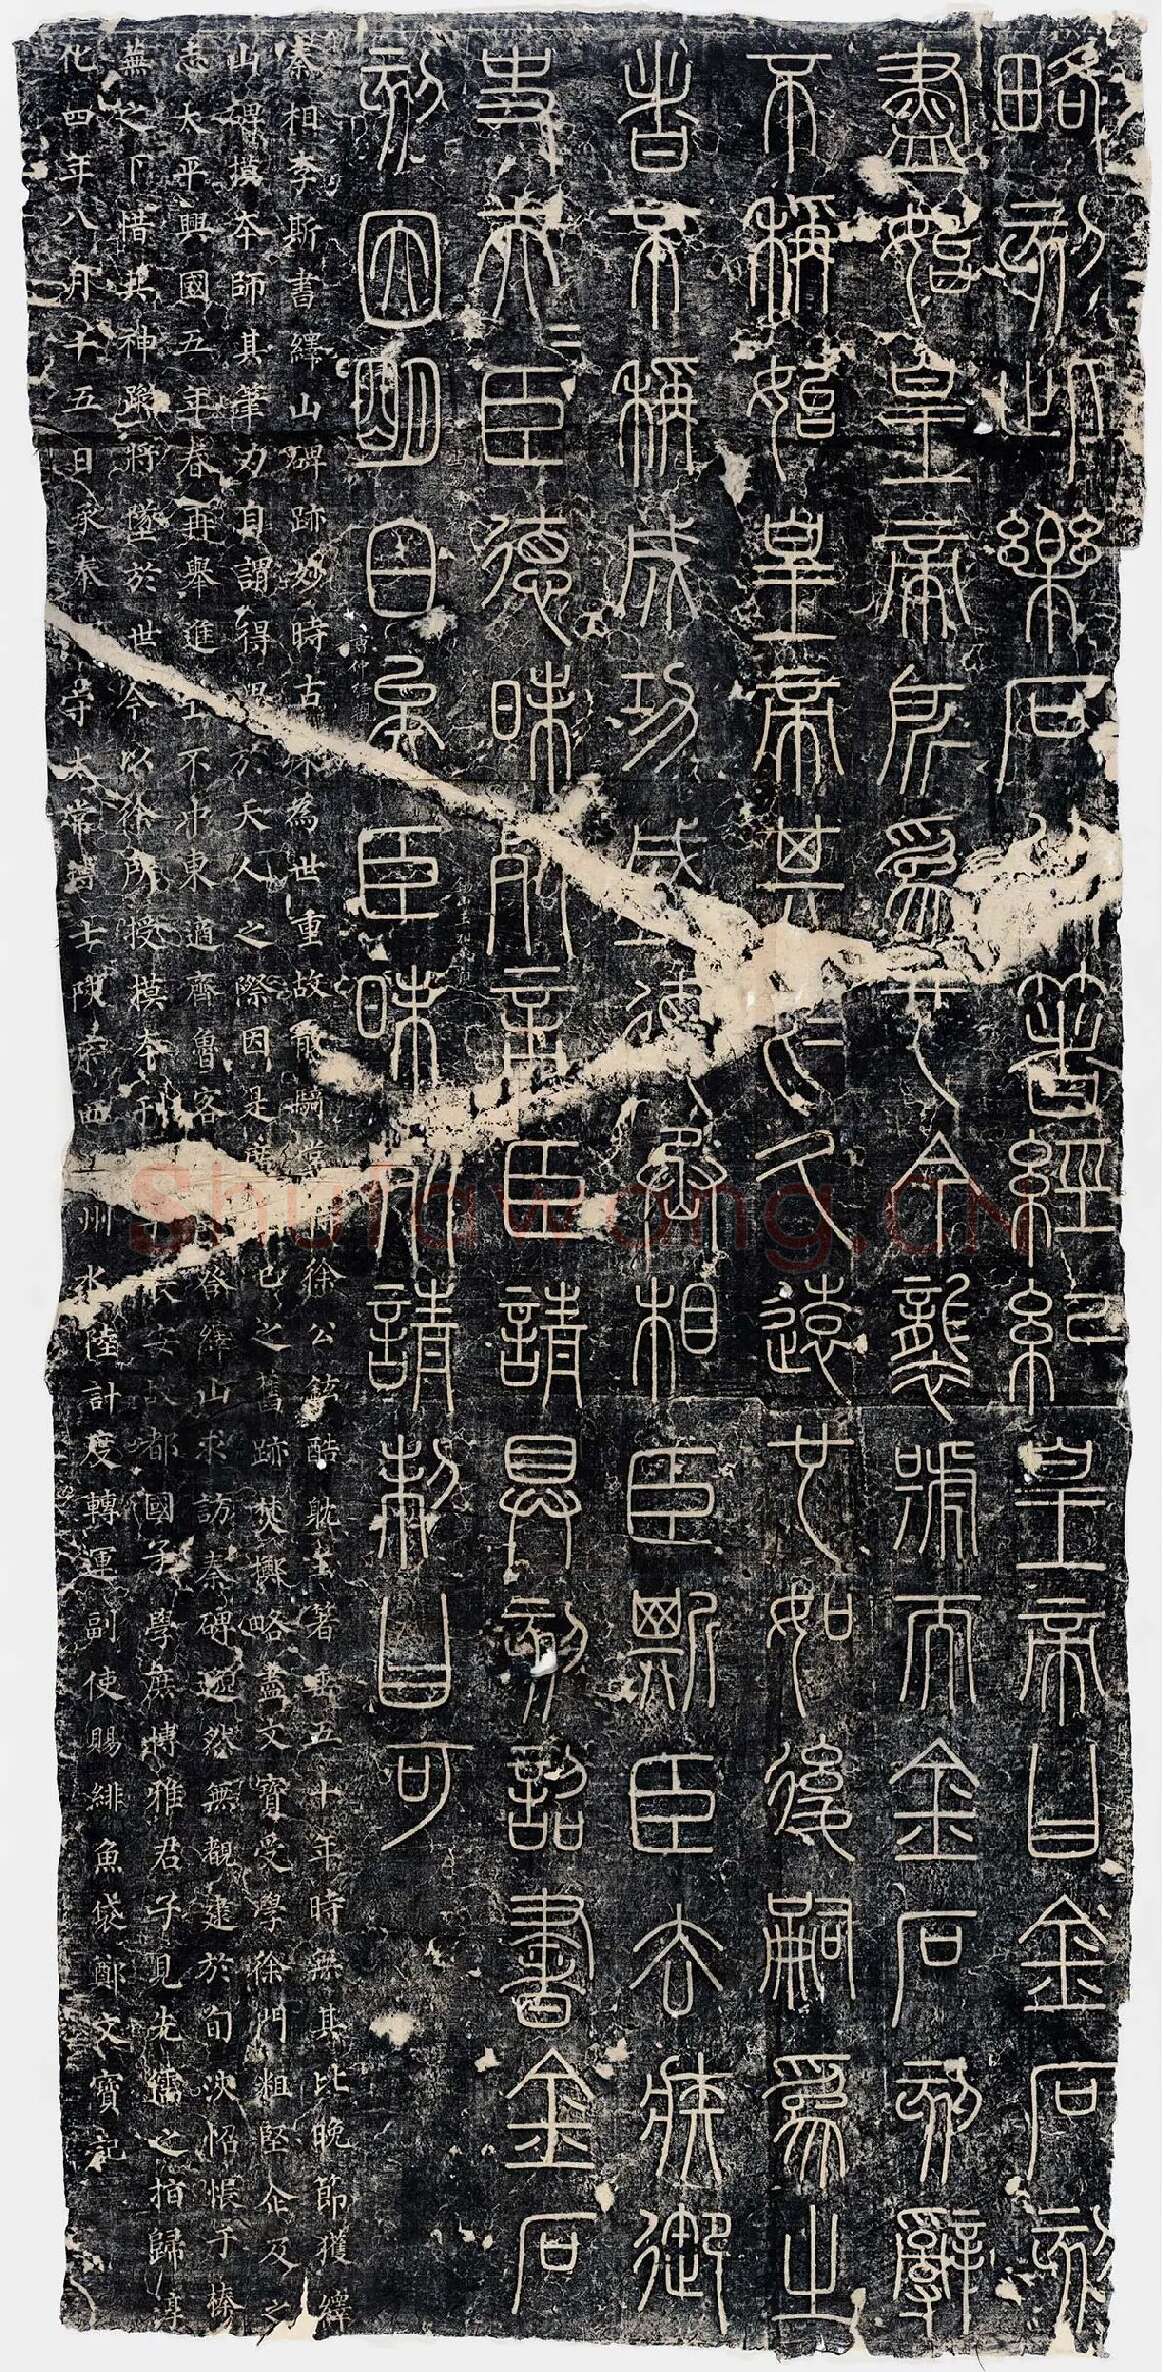 略刻此樂石以著經紀皇帝曰金石刻
盡始皇帝所為也今襲號而金石刻辭
不稱始皇帝其於久遠也如後嗣為之
者不稱成功盛德丞相臣斯臣去疾御
史夫=臣德昧死言臣請具刻詔書金石
刻因明白矣臣昧死請制曰可
秦相李斯書繹山碑跡妙時古殊為世重故散騎常侍徐公鉉酷躭玉箸垂五十年時無其比晚節獲繹
山碑摸本師其筆力自謂得思於天人之際因是廣己之舊跡焚擲略盡文寶受學徐門粗堅企及之
志太平興國五年春再舉進士不中東適齊魯客鄒邑登繹山求訪秦碑邈然無覩逮於旬浹怊悵于榛
蕪之下惜其神蹤將墜於世今以徐所授摸本刊石于長安故都國子學庶博雅君子見先儒之指歸淳
化四年八月十五日承奉郎守太常博士陝府西諸州水陸計度轉運副使賜緋魚袋鄭文寶記
Shufawang.CN